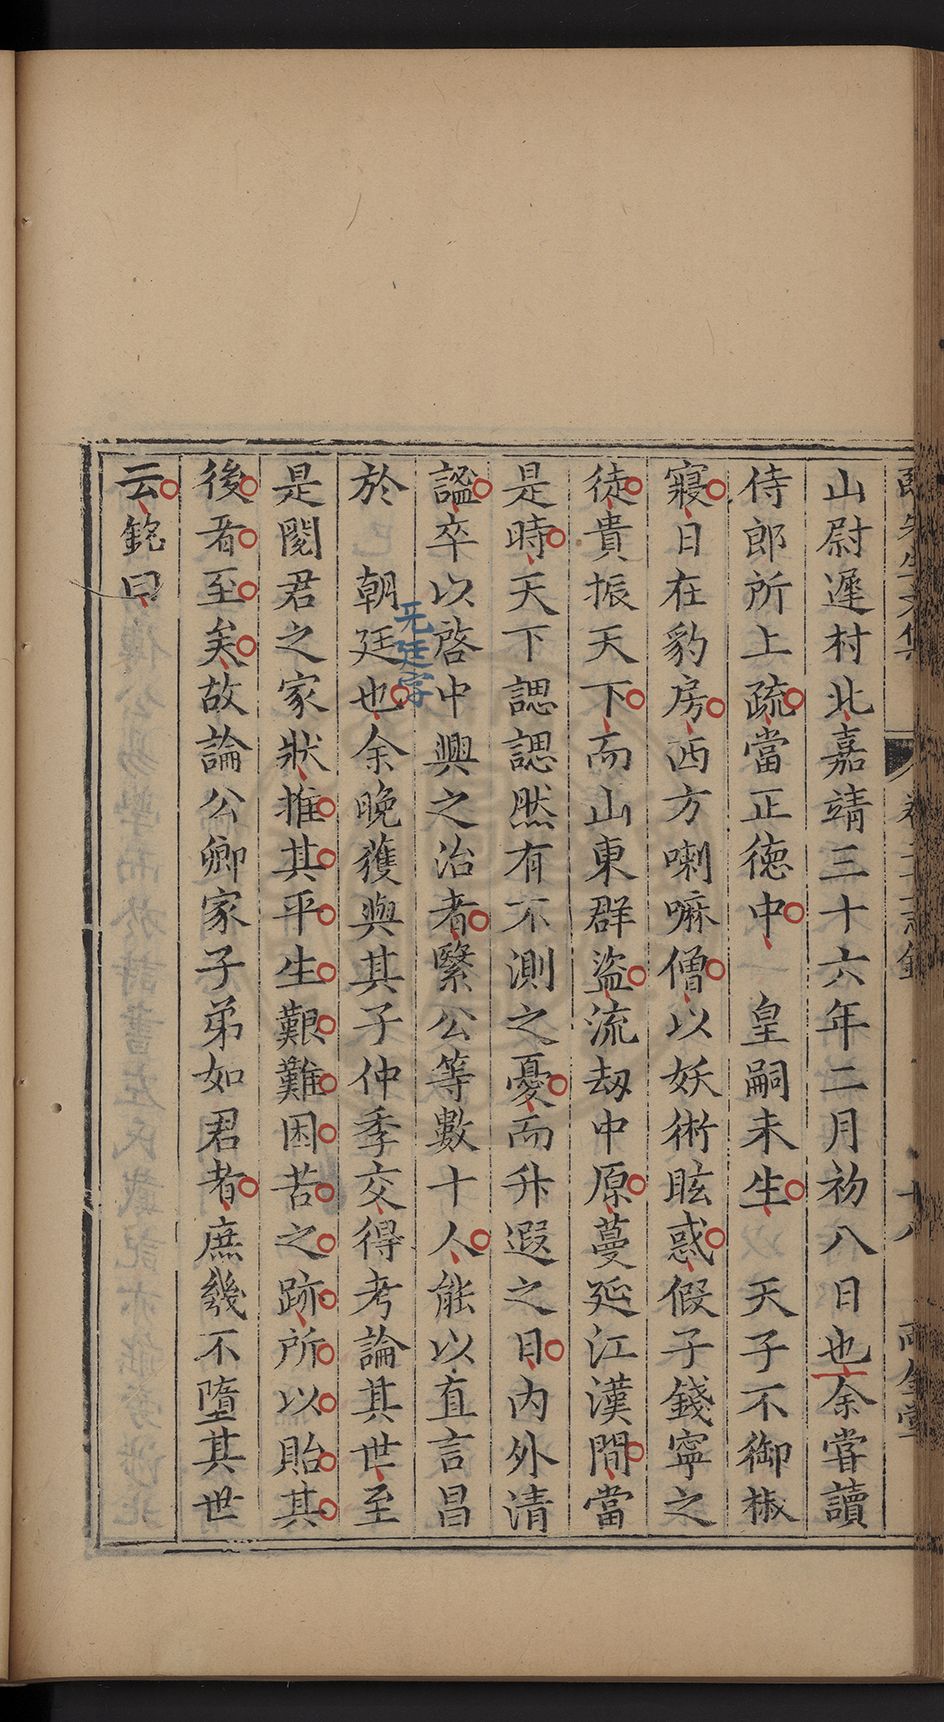 山尉遲村北嘉靖三十六年二月初八日也余嘗讀
侍郎所上疏當正德中 皇嗣未生 天子不御椒
寢日在豹房西方喇嘛僧以妖術眩惑假子錢寧之
徒貴振天下而山東群盜流劫中原蔓延江漢間當
是時天下諰諰然有不測之憂而升遐之日內外清
謐卒以啓中興之治者繄公等數十人能以直言昌
於 朝廷也余晚獲與其子仲季交得考論其世至
无廷字
是閱君之家狀推其平生艱難困苦之跡所以貽其
後者至矣故論公卿家子弟如君者庶幾不墮其世
云銘曰